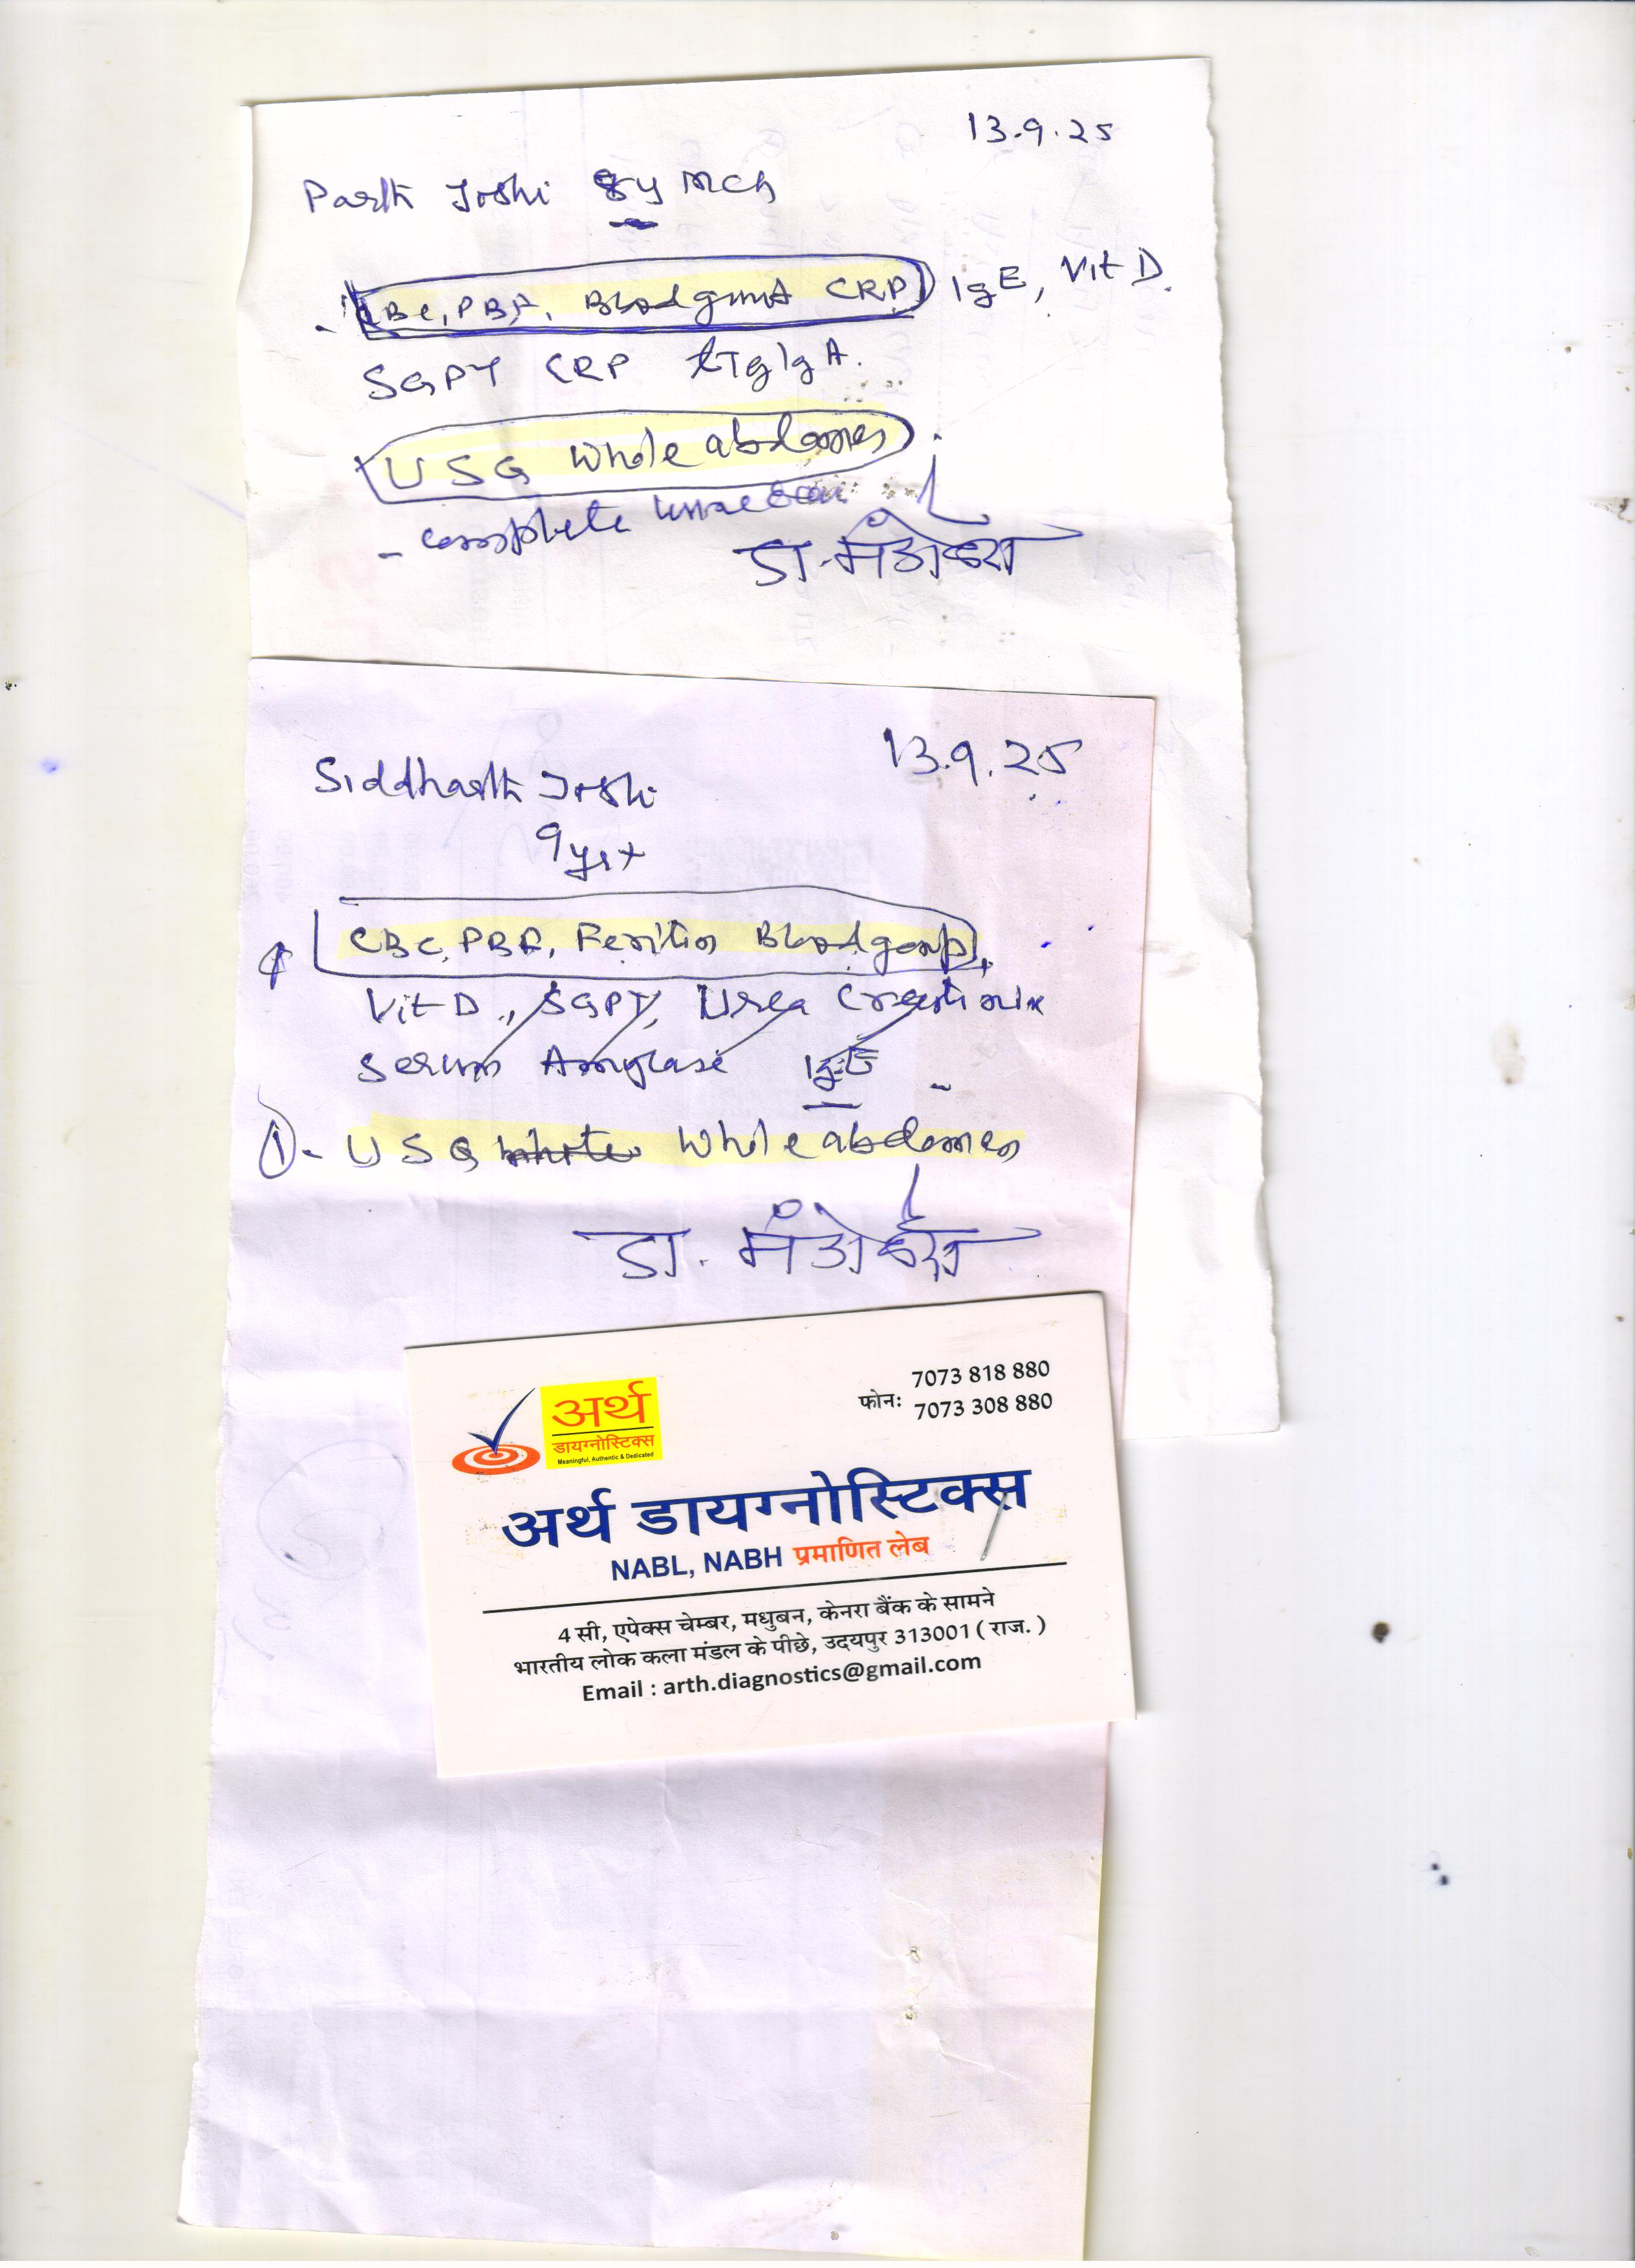 13.9.25
Parth Joshi 8y mch
CBC, PBF, Blood group CRP IgE, Vit D.
SGPT CRP tTg IgA.
USG Whole abdomen
- complete
डा.
13.9.25
Siddharth Joshi
9yrs
CBC, PBF, Feritin Blood group,
Vit D., SGPT, Urea Creatinine
Serum Amylase IgE
1 - USG Whole abdomen
डा.
7073 818 880
फोनः 7073 308 880
अर्थ
डायग्नोस्टिक्स
Meaningful, Authentic & Dedicated
अर्थ डायग्नोस्टिक्स
NABL, NABH प्रमाणित लेब
4 सी, एपेक्स चेम्बर, मधुबन, केनरा बैंक के सामने
भारतीय लोक कला मंडल के पीछे, उदयपुर 313001 ( राज. )
Email : arth.diagnostics@gmail.com